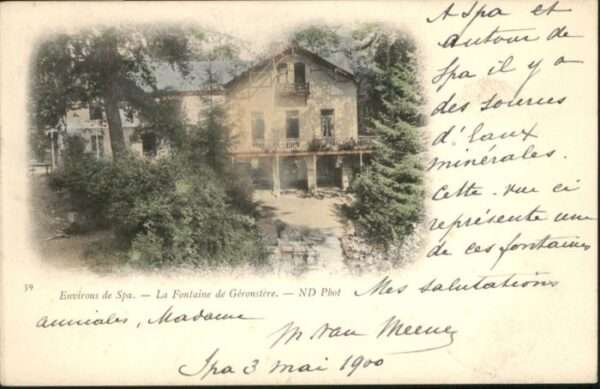 A Spa et
autour de
Spa il y a
des sources
d'eaux
minérales.
Cette vue ci
représente une
de ces fontaines
39
Environs de Spa. — La Fontaine de Géronstère. — ND Phot
Mes salutations
amicales, Madame
M van
Spa 3 mai 1900